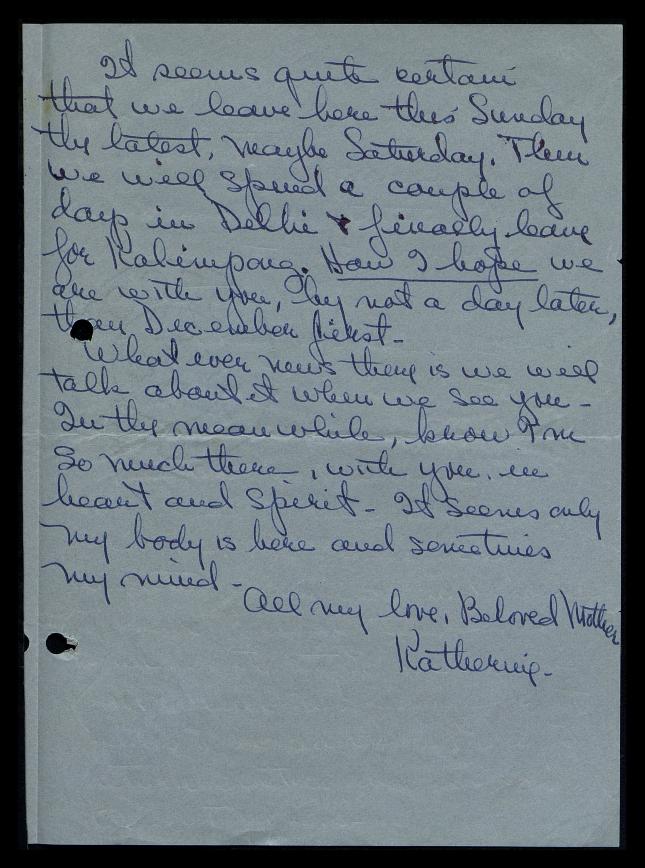 It seems quite certain
that we leave here this Sunday
the latest, maybe Saturday. Then
we will spend a couple of
days in Delhi & finally leave
for Kalimpong. How I hope we
are with you, by not a day later,
than December first -
What ever news there is we will
talk about it when we see you -
In the mean while, know I'm
so much there, with you, in
heart and spirit - It seems only
my body is here and sometimes
my mind -
All my love, Beloved Mother
Katherine -